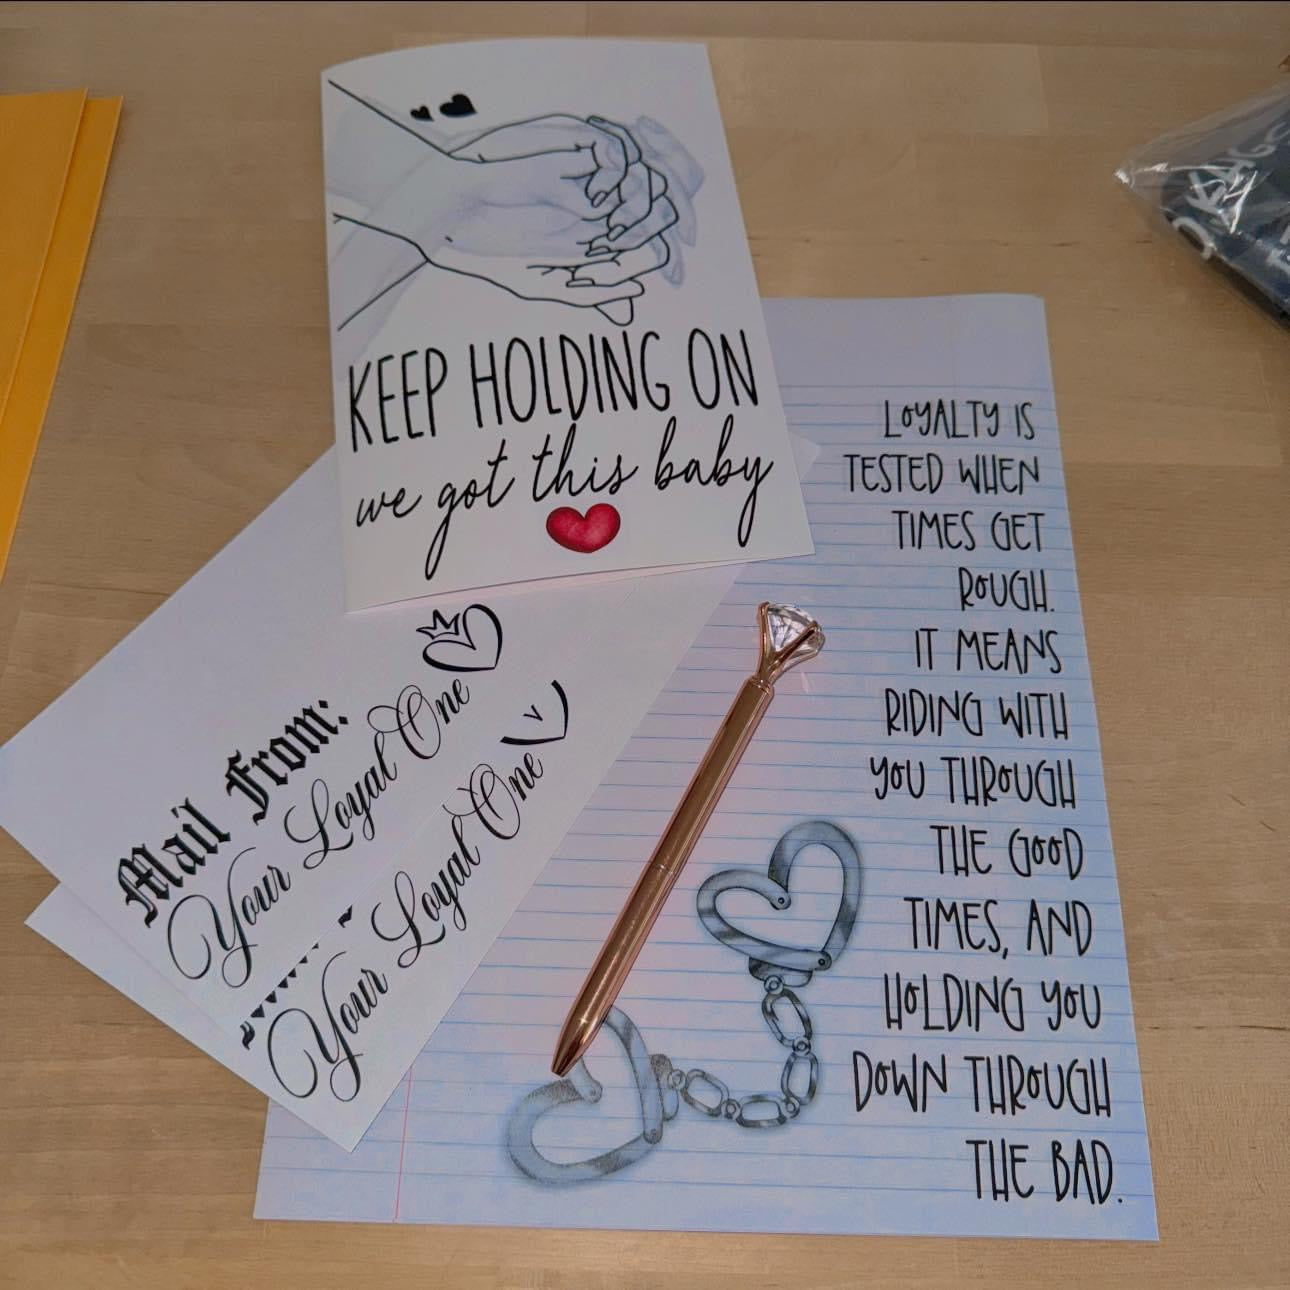 KEEP HOLDING ON
we got this baby
Mail From:
Your Loyal One
Your Loyal One
LOYALTY IS
TESTED WHEN
TIMES GET
ROUGH.
IT MEANS
RIDING WITH
YOU THROUGH
THE GOOD
TIMES, AND
HOLDING YOU
DOWN THROUGH
THE BAD.